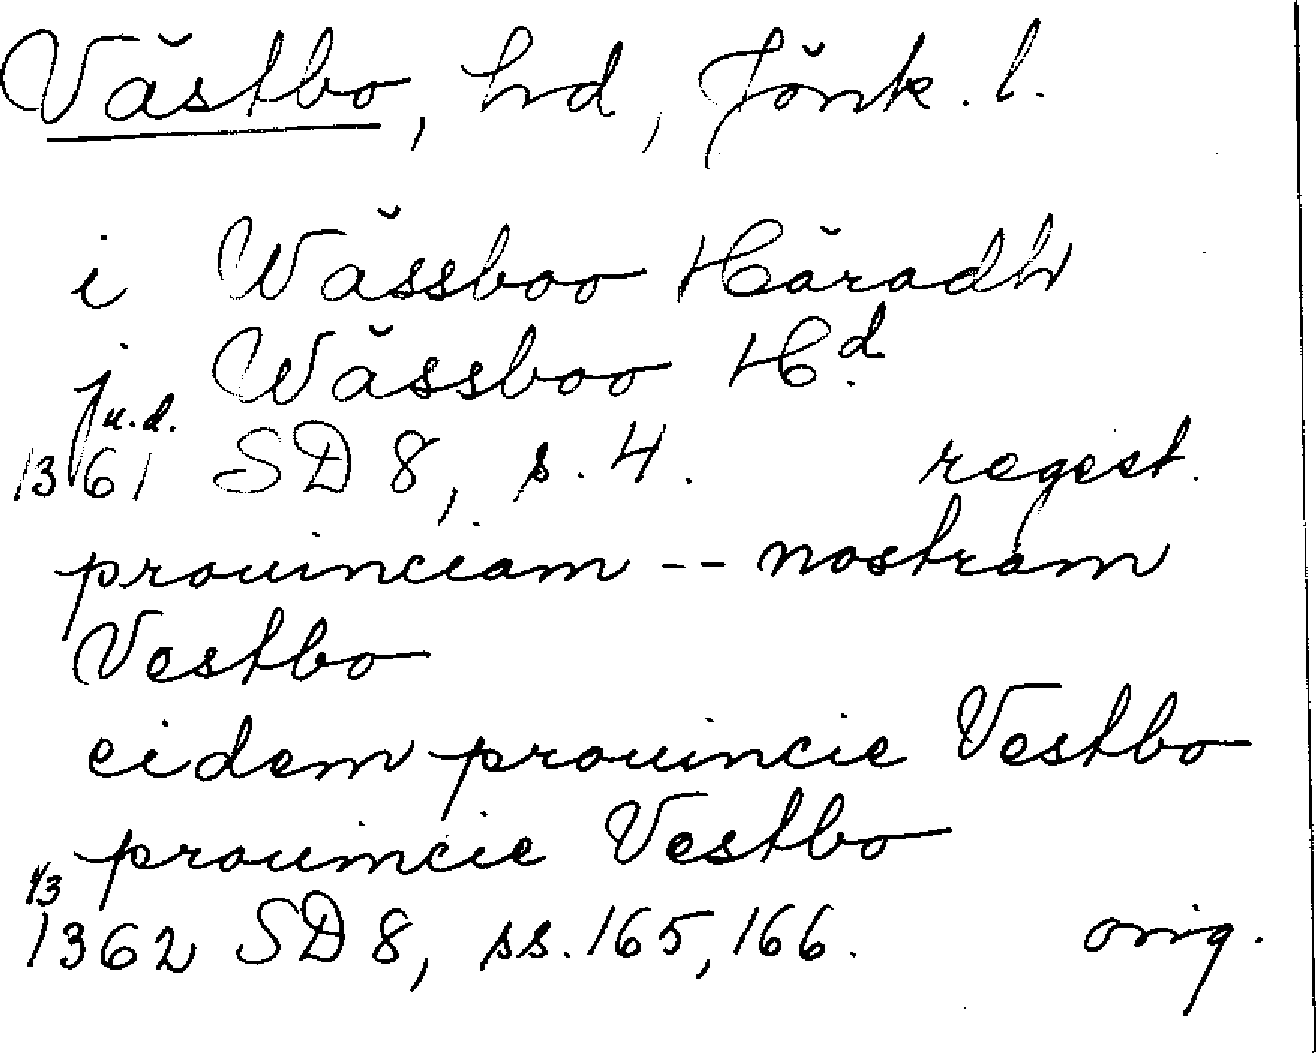 Västbo, hrd, Jönk. l.
i Wässboo Häradh
j Wässboo H.d
u.d.
1361 SD 8, s. 4. regest.
prouinciam -- nostram
Vestbo
eidem prouincie Vestbo
prouincie Vestbo
1/3
1362 SD 8, ss. 165, 166. orig.